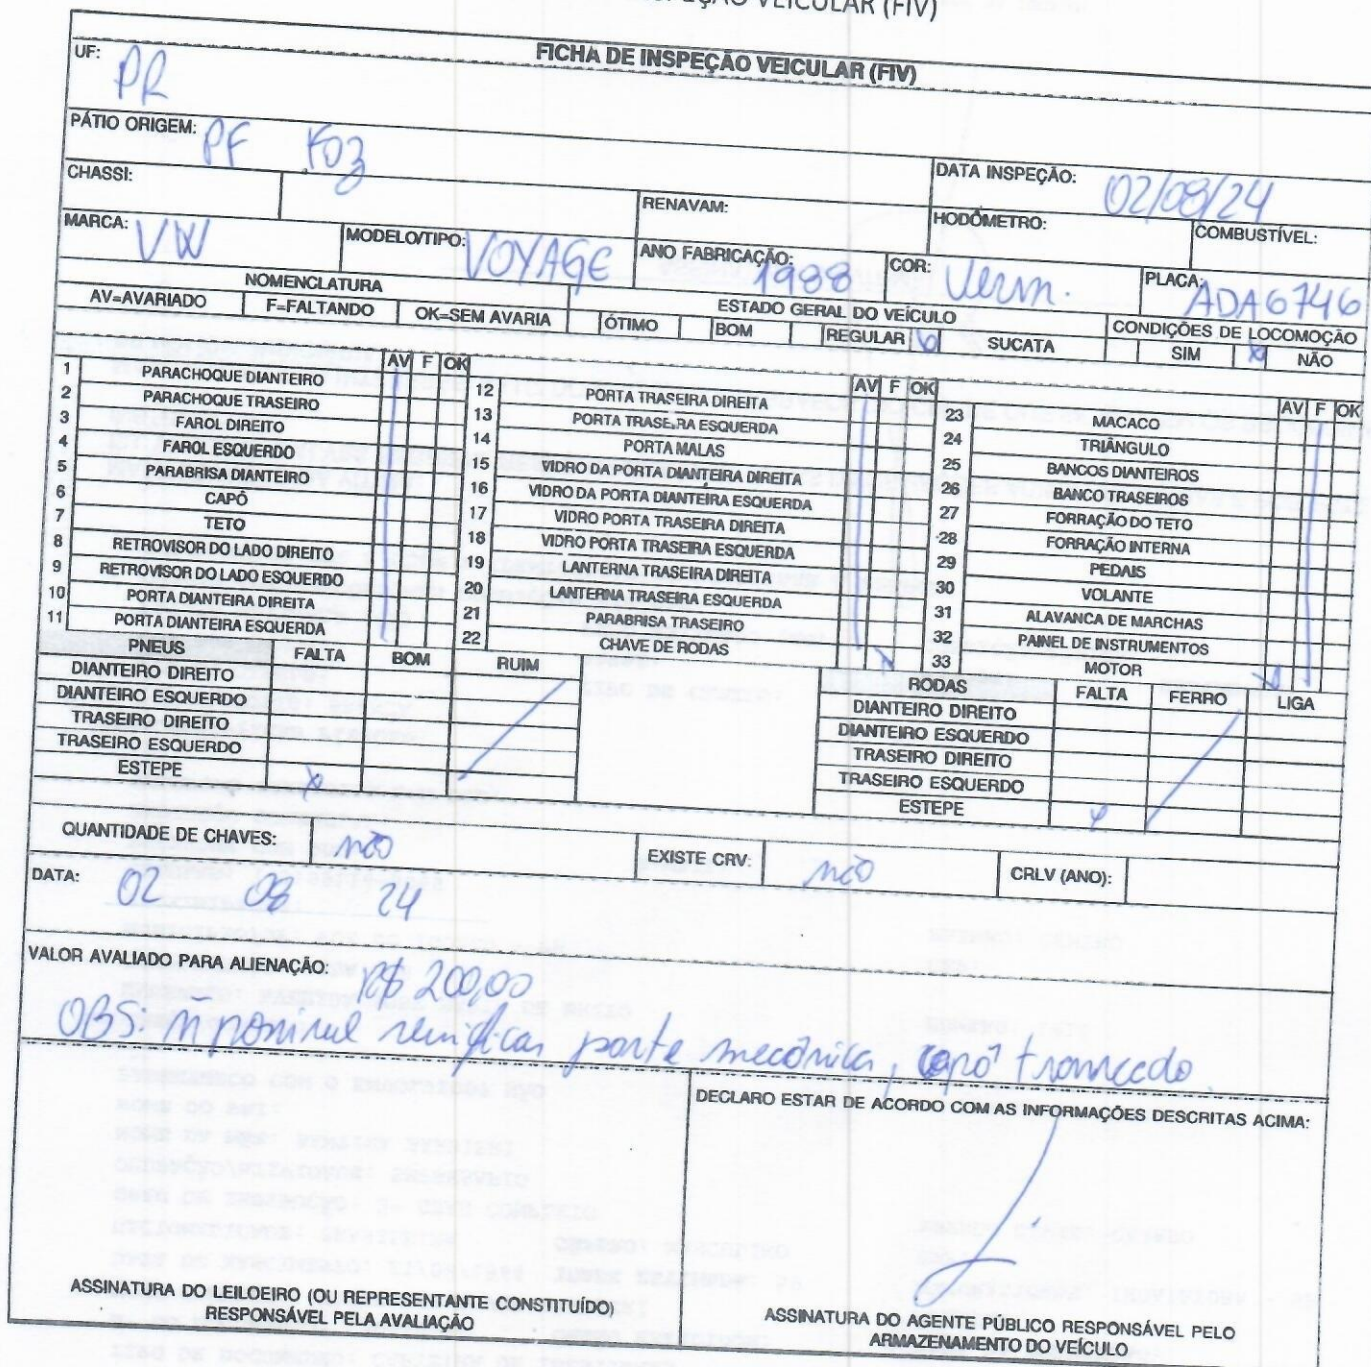 INSPEÇÃO VEICULAR (FIV)
FICHA DE INSPEÇÃO VEICULAR (FIV)
UF: PR
PÁTIO ORIGEM: PF FOZ
DATA INSPEÇÃO: 02/08/24
CHASSI: RENAVAM: HODÔMETRO: COMBUSTÍVEL:
MARCA: VW MODELO/TIPO: VOYAGE ANO FABRICAÇÃO: 1988 COR: Verm. PLACA: ADA6746
NOMENCLATURA ESTADO GERAL DO VEÍCULO CONDIÇÕES DE LOCOMOÇÃO
AV=AVARIADO F=FALTANDO OK=SEM AVARIA ÓTIMO BOM REGULAR x SUCATA SIM x NÃO
AV F OK
1 PARACHOQUE DIANTEIRO
2 PARACHOQUE TRASEIRO
3 FAROL DIREITO
4 FAROL ESQUERDO
5 PARABRISA DIANTEIRO
6 CAPÔ
7 TETO
8 RETROVISOR DO LADO DIREITO
9 RETROVISOR DO LADO ESQUERDO
10 PORTA DIANTEIRA DIREITA
11 PORTA DIANTEIRA ESQUERDA
AV F OK
12 PORTA TRASEIRA DIREITA
13 PORTA TRASEIRA ESQUERDA
14 PORTA MALAS
15 VIDRO DA PORTA DIANTEIRA DIREITA
16 VIDRO DA PORTA DIANTEIRA ESQUERDA
17 VIDRO PORTA TRASEIRA DIREITA
18 VIDRO PORTA TRASEIRA ESQUERDA
19 LANTERNA TRASEIRA DIREITA
20 LANTERNA TRASEIRA ESQUERDA
21 PARABRISA TRASEIRO
22 CHAVE DE RODAS x
AV F OK
23 MACACO
24 TRIÂNGULO
25 BANCOS DIANTEIROS
26 BANCO TRASEIROS
27 FORRAÇÃO DO TETO
28 FORRAÇÃO INTERNA
29 PEDAIS
30 VOLANTE
31 ALAVANCA DE MARCHAS
32 PAINEL DE INSTRUMENTOS
33 MOTOR x
PNEUS FALTA BOM RUIM
DIANTEIRO DIREITO
DIANTEIRO ESQUERDO
TRASEIRO DIREITO
TRASEIRO ESQUERDO
ESTEPE x
RODAS FALTA FERRO LIGA
DIANTEIRO DIREITO
DIANTEIRO ESQUERDO
TRASEIRO DIREITO
TRASEIRO ESQUERDO
ESTEPE x
QUANTIDADE DE CHAVES: não EXISTE CRV: não CRLV (ANO):
DATA: 02 08 24
VALOR AVALIADO PARA ALIENAÇÃO: R$ 200,00
OBS: parte mecânica, capô
DECLARO ESTAR DE ACORDO COM AS INFORMAÇÕES DESCRITAS ACIMA:
ASSINATURA DO LEILOEIRO (OU REPRESENTANTE CONSTITUÍDO)
RESPONSÁVEL PELA AVALIAÇÃO
ASSINATURA DO AGENTE PÚBLICO RESPONSÁVEL PELO
ARMAZENAMENTO DO VEÍCULO